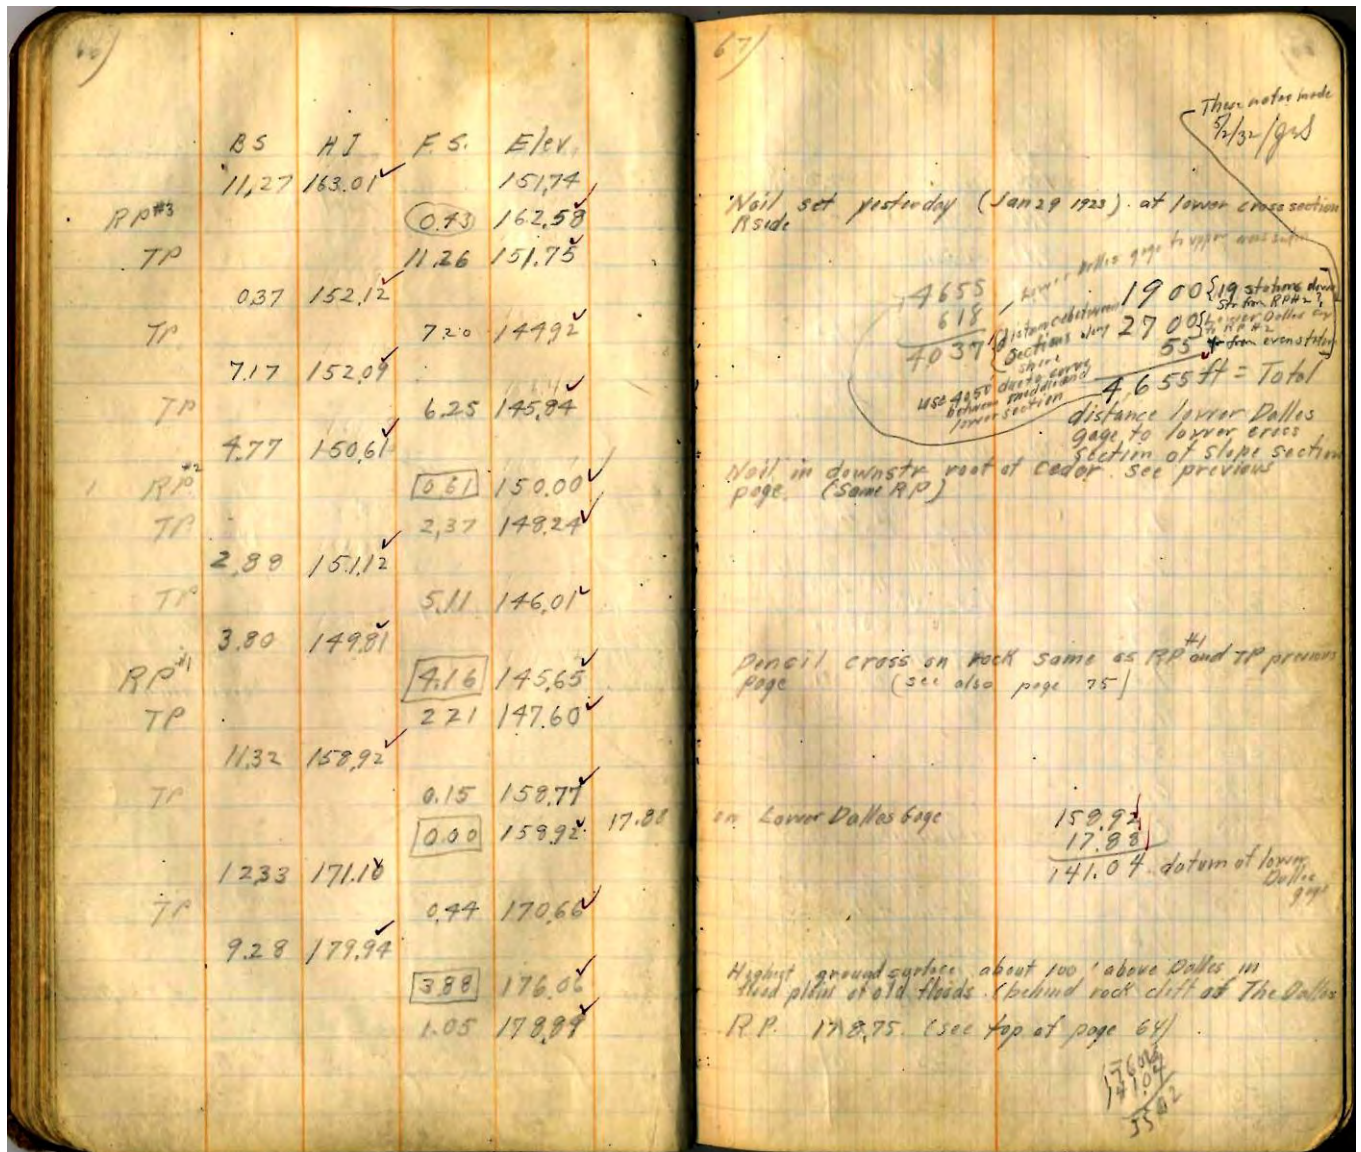 66)
BS HI F.S. Elev.
11,27 163.01✓ 151,74
RP#3 0.43 162,58✓
TP 11.26 151.75✓
0.37 152,12✓
TP 7.20 144.92✓
7.17 152.09✓
TP 6.25 145.84✓
4.77 150,61✓
RP#2 0.61 150.00✓
TP 2,37 148.24✓
2,88 151.12✓
TP 5.11 146.01✓
3.80 149.81✓
RP#1 4.16 145.65✓
TP 2 21 147.60✓
11.32 158,92✓
TP 0.15 158.77✓
0.00 158.92✓ 17.88
12.33 171.10✓
TP 0.44 170.66✓
9.28 179.94✓
3.88 176.06✓
1.05 178.89✓
67)
These notes made
5/2/32/GRS
Nail set yesterday (Jan 29 1923). at lower cross section
R side
4655 Lower Dalles gage to upper cross section
618
4037 { distance between
sections along
shore
use 4050 due to curve
between middle and
lower section
1900 {19 stations down
str from RP#2?
2700 {Lower Dalles
to RP #2
55 from even station
4,655 ft = Total
distance lower Dalles
gage to lower cross
section of slope section
Nail in downstr root of cedar. see previous
page. (Same RP)
Pencil cross on rock same as RP#1 and TP previous
page (see also page 75)
on Lower Dalles Gage
158.92
17.88
141.04 datum of lower
Dalles
gage
Highest ground surface about 100' above Dalles in
flood plain of old floods. (behind rock cliff of The Dalles
R.P. 178.75. (see top of page 64)
176.06
141.04
35.02